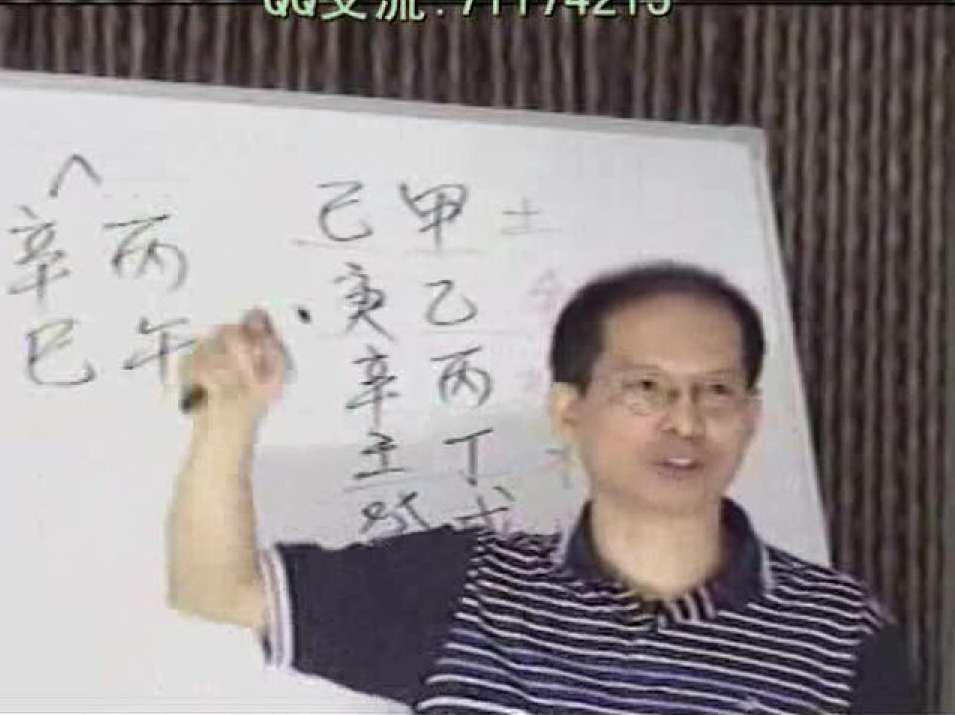 QQ交流:71174213
辛 丙
巳 午
己 甲 土
庚 乙
辛 丙
壬 丁
癸 戊